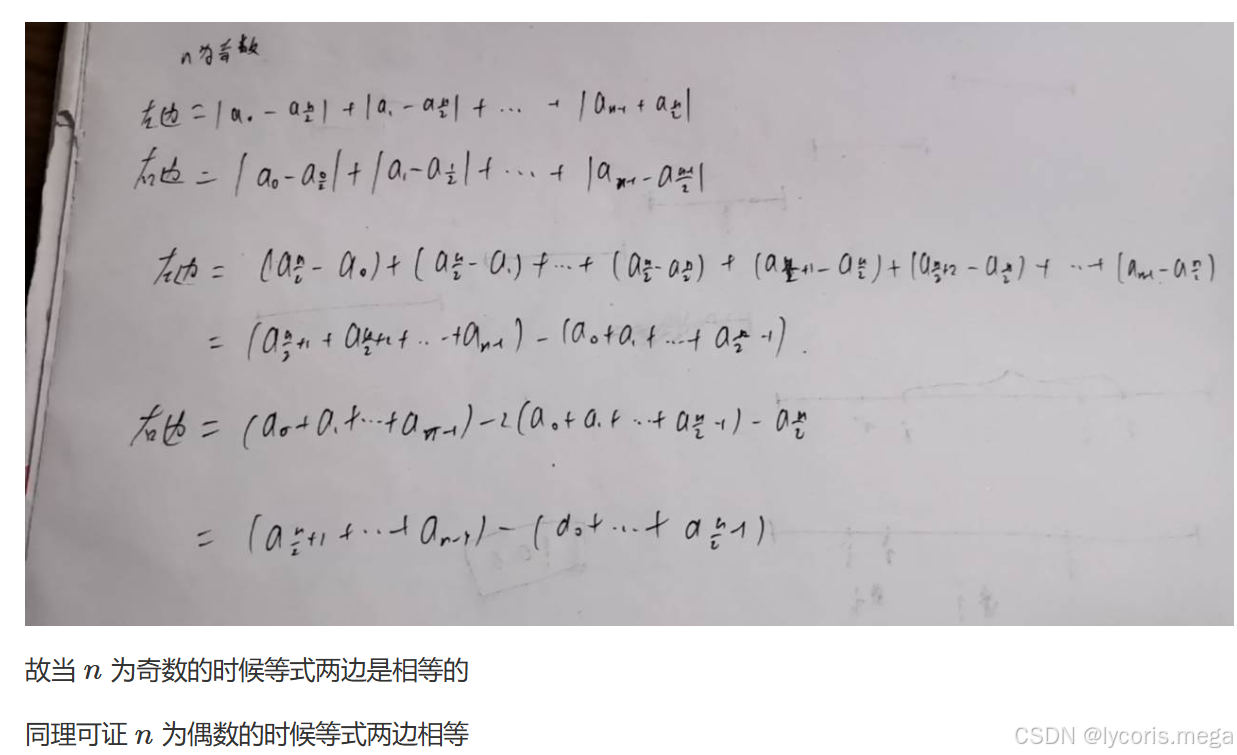 n为奇数
左边 = |a₀ - a n/2| + |a₁ - a n/2| + … + |aₙ₋₁ + a n/2|
右边 = |a₀ - a 0/2| + |a₁ - a 1/2| + … + |aₙ₋₁ - a n-1/2|
左边 = (a n/2 - a₀) + (a n/2 - a₁) + … + (a n/2 - a n/2) + (a n/2+1 - a n/2) + (a n/2+2 - a n/2) + … + (aₙ₋₁ - a n/2)
= (a n/2+1 + a n/2+2 + … + aₙ₋₁) - (a₀ + a₁ + … + a n/2-1).
右边 = (a₀ + a₁ + … + aₙ₋₁) - 2(a₀ + a₁ + … + a n/2-1) - a n/2
= (a n/2+1 + … + aₙ₋₁) - (a₀ + … + a n/2-1)
故当 n 为奇数的时候等式两边是相等的
同理可证 n 为偶数的时候等式两边相等
CSDN @lycoris.mega